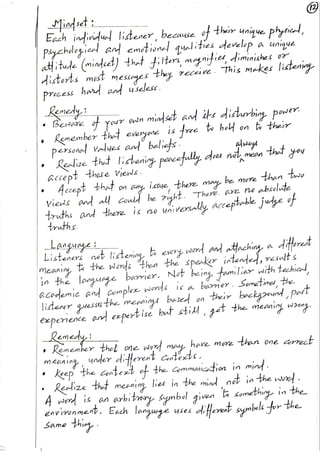 12
Mindset :
Each individual listener, because of their unique physical,
psychological and emotional qualities develop a unique
attitude (mindset) that filters, magnifies, diminishes or
distorts most messages they receive. This makes listening
process hard and useless.
Remedy :
• Beware of your own mindset and its disturbing power.
• Remember that everyone is free to hold on to their
personal values and beliefs.
• Realize that listening peacefully does not always mean that you
accept those views.
• Accept that on any issue, there may be more than two
views and all could be right. There are no absolute
truths and there is no universally acceptable judge of
truths.
Language :
Listeners not listening to every word and attaching a different
meaning to the words than the speaker intended, results
in the language barrier. Not being familiar with technical,
academic and complex words is a barrier. Sometimes, the
listener guesses the meanings based on their background, past
experience and expertise but still, get the meaning wrong.
Remedy :
• Remember that one word may have more than one correct
meaning, under different contexts.
• Keep the context of the communication in mind.
• Realize that meaning lies in the mind, not in the word.
A word is an arbitrary symbol given to something in the
environment. Each language uses different symbols for the
same thing.